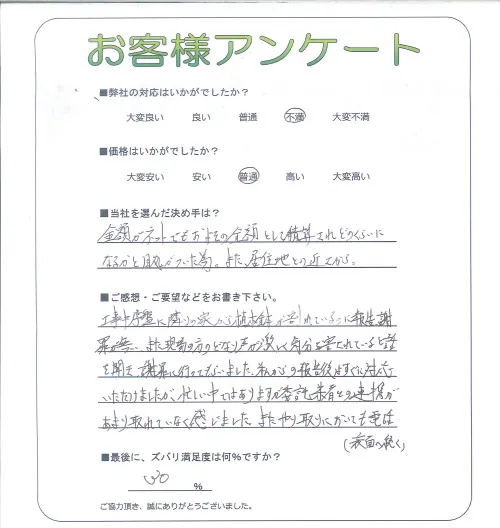 お客様アンケート
■弊社の対応はいかがでしたか？
大変良い 良い 普通 不満 大変不満
■価格はいかがでしたか？
大変安い 安い 普通 高い 大変高い
■当社を選んだ決め手は？
金額がネットでもおよその金額として積算されどのくらいに
なるかと目処がついた為。また、居住地との近さから。
■ご感想・ご要望などをお書き下さい。
工事中序盤に隣りの家から植木鉢が割れているのに報告謝
罪が無い、また現場の方のどなり声が激しく気分を害されていると話
を聞き、謝罪に行ってもらいました。私からの報告後はすぐに対応
いただけましたが、忙しい中ではありますが委託業者との連携が
あまり取れていなく感じました。またやり取りにおいても電話
(裏面へ続く)
■最後に、ズバリ満足度は何%ですか？
%
ご協力頂き、誠にありがとうございました。